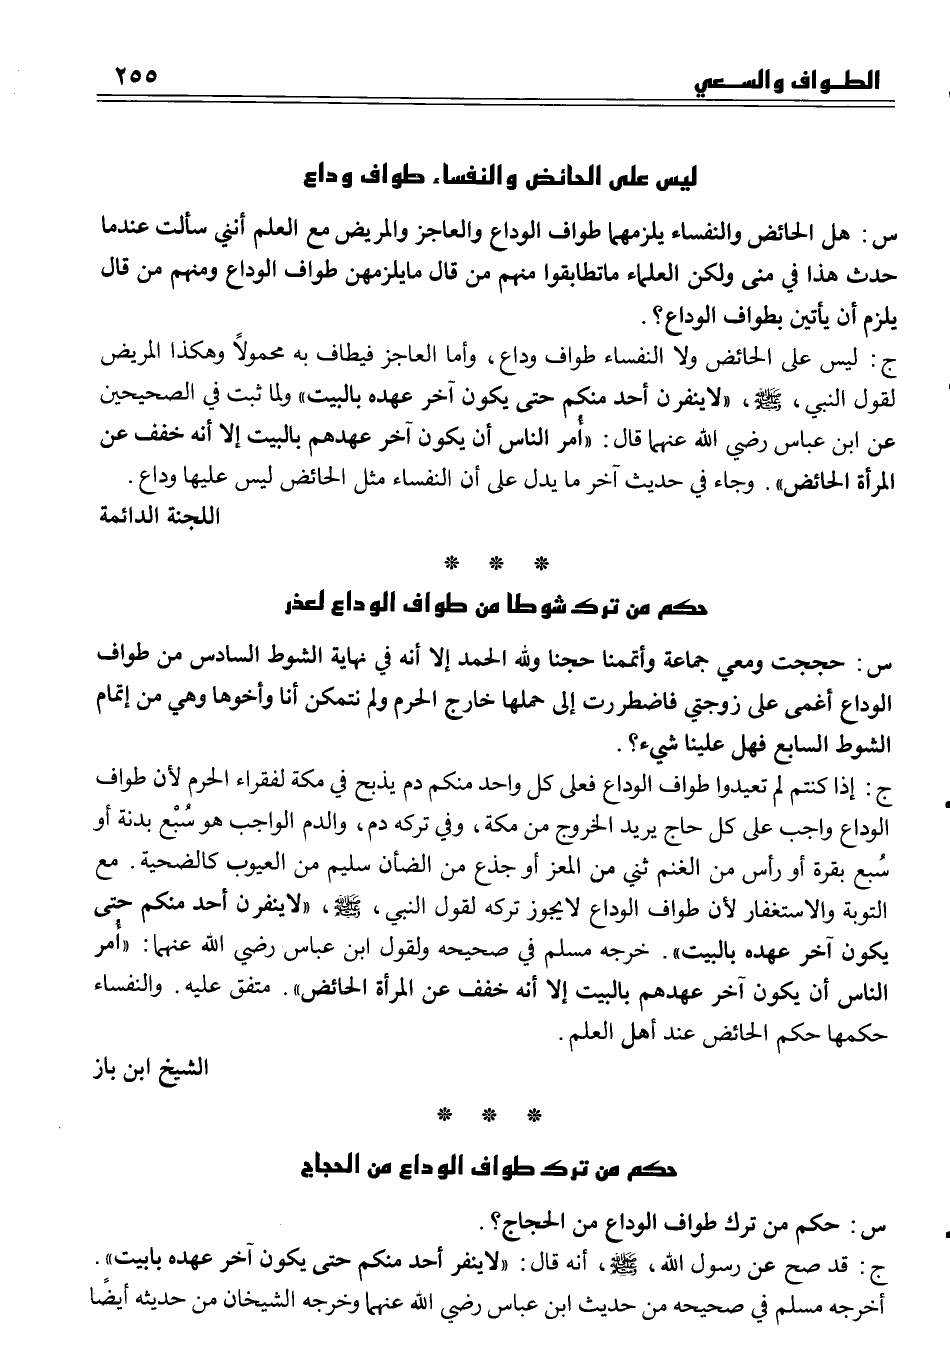 الطواف والسعي ٢٥٥
ليس على الحائض والنفساء طواف وداع
س : هل الحائض والنفساء يلزمهما طواف الوداع والعاجز والمريض مع العلم أنني سألت عندما
حدث هذا في منى ولكن العلماء ماتطابقوا منهم من قال مايلزمهن طواف الوداع ومنهم من قال
يلزم أن يأتين بطواف الوداع؟ .
ج : ليس على الحائض ولا النفساء طواف وداع ، وأما العاجز فيطاف به محمولاً وهكذا المريض
لقول النبي ، ﷺ ، «لاينفرن أحد منكم حتى يكون آخر عهده بالبيت» ولما ثبت في الصحيحين
عن ابن عباس رضي الله عنهما قال : «أُمر الناس أن يكون آخر عهدهم بالبيت إلا أنه خفف عن
المرأة الحائض» . وجاء في حديث آخر ما يدل على أن النفساء مثل الحائض ليس عليها وداع .
اللجنة الدائمة
* * *
حكم من ترك شوطا من طواف الوداع لعذر
س : حججت ومعي جماعة وأتممنا حجنا ولله الحمد إلا أنه في نهاية الشوط السادس من طواف
الوداع أغمى على زوجتي فاضطررت إلى حملها خارج الحرم ولم نتمكن أنا وأخوها وهي من إتمام
الشوط السابع فهل علينا شيء؟ .
ج : إذا كنتم لم تعيدوا طواف الوداع فعلى كل واحد منكم دم يذبح في مكة لفقراء الحرم لأن طواف
الوداع واجب على كل حاج يريد الخروج من مكة ، وفي تركه دم ، والدم الواجب هو سُبْع بدنة أو
سُبع بقرة أو رأس من الغنم ثني من المعز أو جذع من الضأن سليم من العيوب كالضحية . مع
التوبة والاستغفار لأن طواف الوداع لايجوز تركه لقول النبي ، ﷺ ، «لاينفرن أحد منكم حتى
يكون آخر عهده بالبيت» . خرجه مسلم في صحيحه ولقول ابن عباس رضي الله عنهما : «أُمر
الناس أن يكون آخر عهدهم بالبيت إلا أنه خفف عن المرأة الحائض» . متفق عليه . والنفساء
حكمها حكم الحائض عند أهل العلم .
الشيخ ابن باز
* * *
حكم من ترك طواف الوداع من الحجاج
س : حكم من ترك طواف الوداع من الحجاج؟ .
ج : قد صح عن رسول الله ، ﷺ ، أنه قال : «لاينفر أحد منكم حتى يكون آخر عهده بابيت» .
أخرجه مسلم في صحيحه من حديث ابن عباس رضي الله عنهما وخرجه الشيخان من حديثه أيضًا